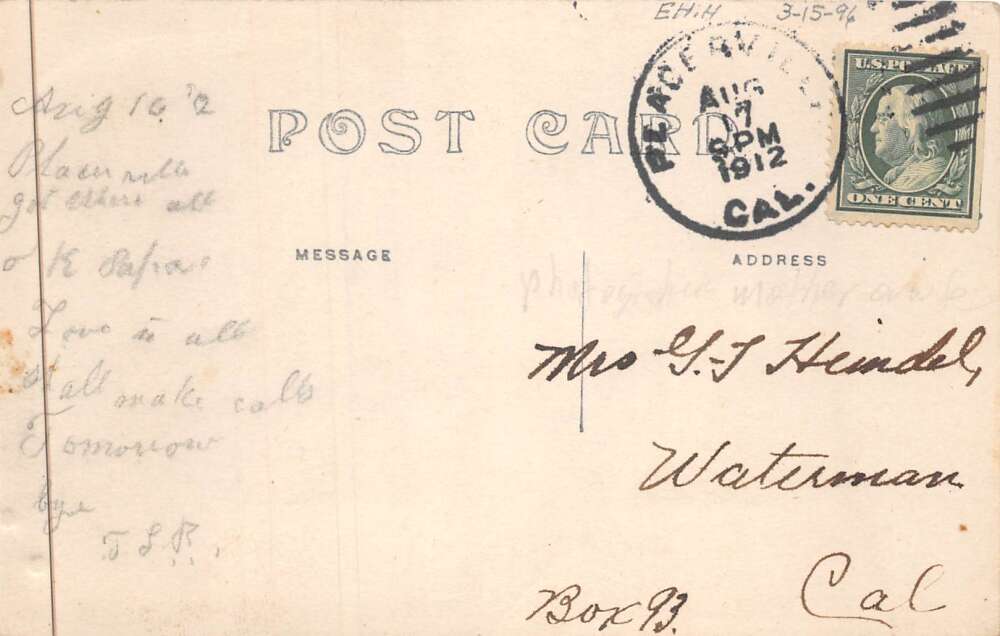 EH.H 3-15-96
POST CARD
PLACERVILLE
AUG
17
8 PM
1912
CAL.
U.S. POSTAGE
ONE CENT
MESSAGE
ADDRESS
Aug 16 '12
Placerville
got there all
o K Papa
Love to all
Wall make calls
Tomorrow
bye
T S R.
mother
Mrs G. T Heindel,
Waterman
Cal
Box 93.